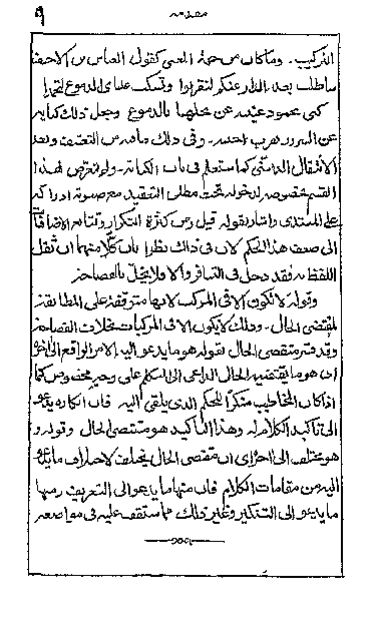 مقدمه ٩
التركيب . وما كان من جهة المعنى كقول العباس بن الاحنف
ساطلب بعد الدار عنكم لتقربوا وتسكب عيناى الدموع لتجمدا
كنى بجمود عينيه عن بخلها بالدموع وجعل ذلك كناية
عن السرور بقرب احبته . وفى ذلك ما فيه من التعسف وبعد
الانتقال الذهنى كما ستعلم فى باب الكناية . ولم نتعرض لهذا
القسم بخصوصه لدخوله تحت مطلق التعقيد مع صعوبة ادراكه
على المبتدى واشار بقوله قيل ومن كثرة التكرار وتتابع الاضافات
الى ضعف هذا الحكم لان فى ذلك نظرا بان كلا منهما ان ثقل
اللفظ به فقد دخل فى التنافر والا فلا يخل بالفصاحة
وقوله لا تكون الا فى المركب لانها متوقفة على المطابقة
لمقتضى الحال . وذلك لا يكون الا فى المركبات بخلاف الفصاحة
وقد فسر مقتضى الحال بقوله هو ما يدعو اليه الامر الواقع الى اخره
اى هو ما يقتضيه الحال الداعى الى التكلم على وجه مخصوص كما
اذا كان المخاطب منكرا للحكم الذى يلقى اليه فان انكاره يدعو
الى تاكيد الكلام له وهذا التاكيد هو مقتضى الحال وقوله و
هو مختلف الى اخره اى ان مقتضى الحال يختلف لاختلاف ما يدعو
اليه من مقامات الكلام فان منها ما يدعو الى التعريف ومنها
ما يدعو الى التنكير وغير ذلك مما ستقف عليه فى مواضعه